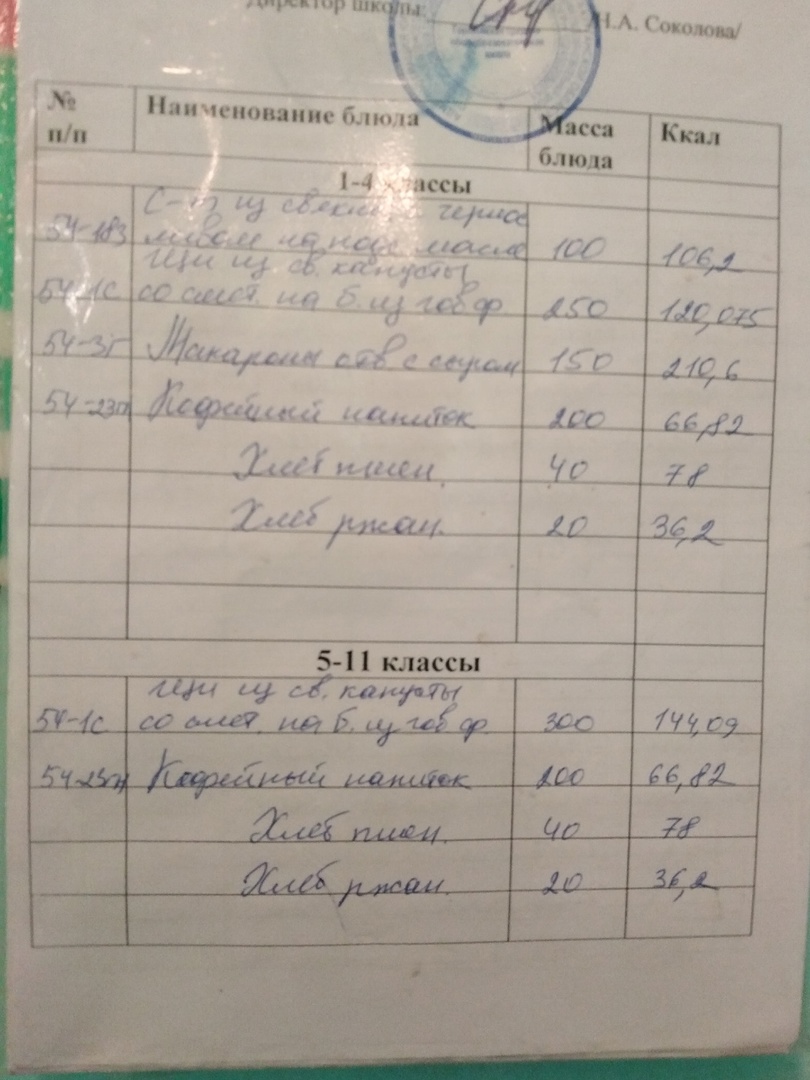 Директор школы: /Н.А. Соколова/
№ п/п Наименование блюда Масса блюда Ккал
1-4 классы
С-т из свеклы с чернос
54-13з ливом на раст. масле 100 106,2
Щи из св. капусты
54-1с со смет. на б. из гов ф 250 120,075
54-3г Макароны отв с сыром 150 210,6
54-23гн Кофейный напиток 200 66,82
Хлеб пшен. 40 78
Хлеб ржан. 20 36,2
5-11 классы
Щи из св. капусты
54-1с со смет. на б. из гов ф. 300 144,09
54-23гн Кофейный напиток 200 66,82
Хлеб пшен. 40 78
Хлеб ржан. 20 36,2